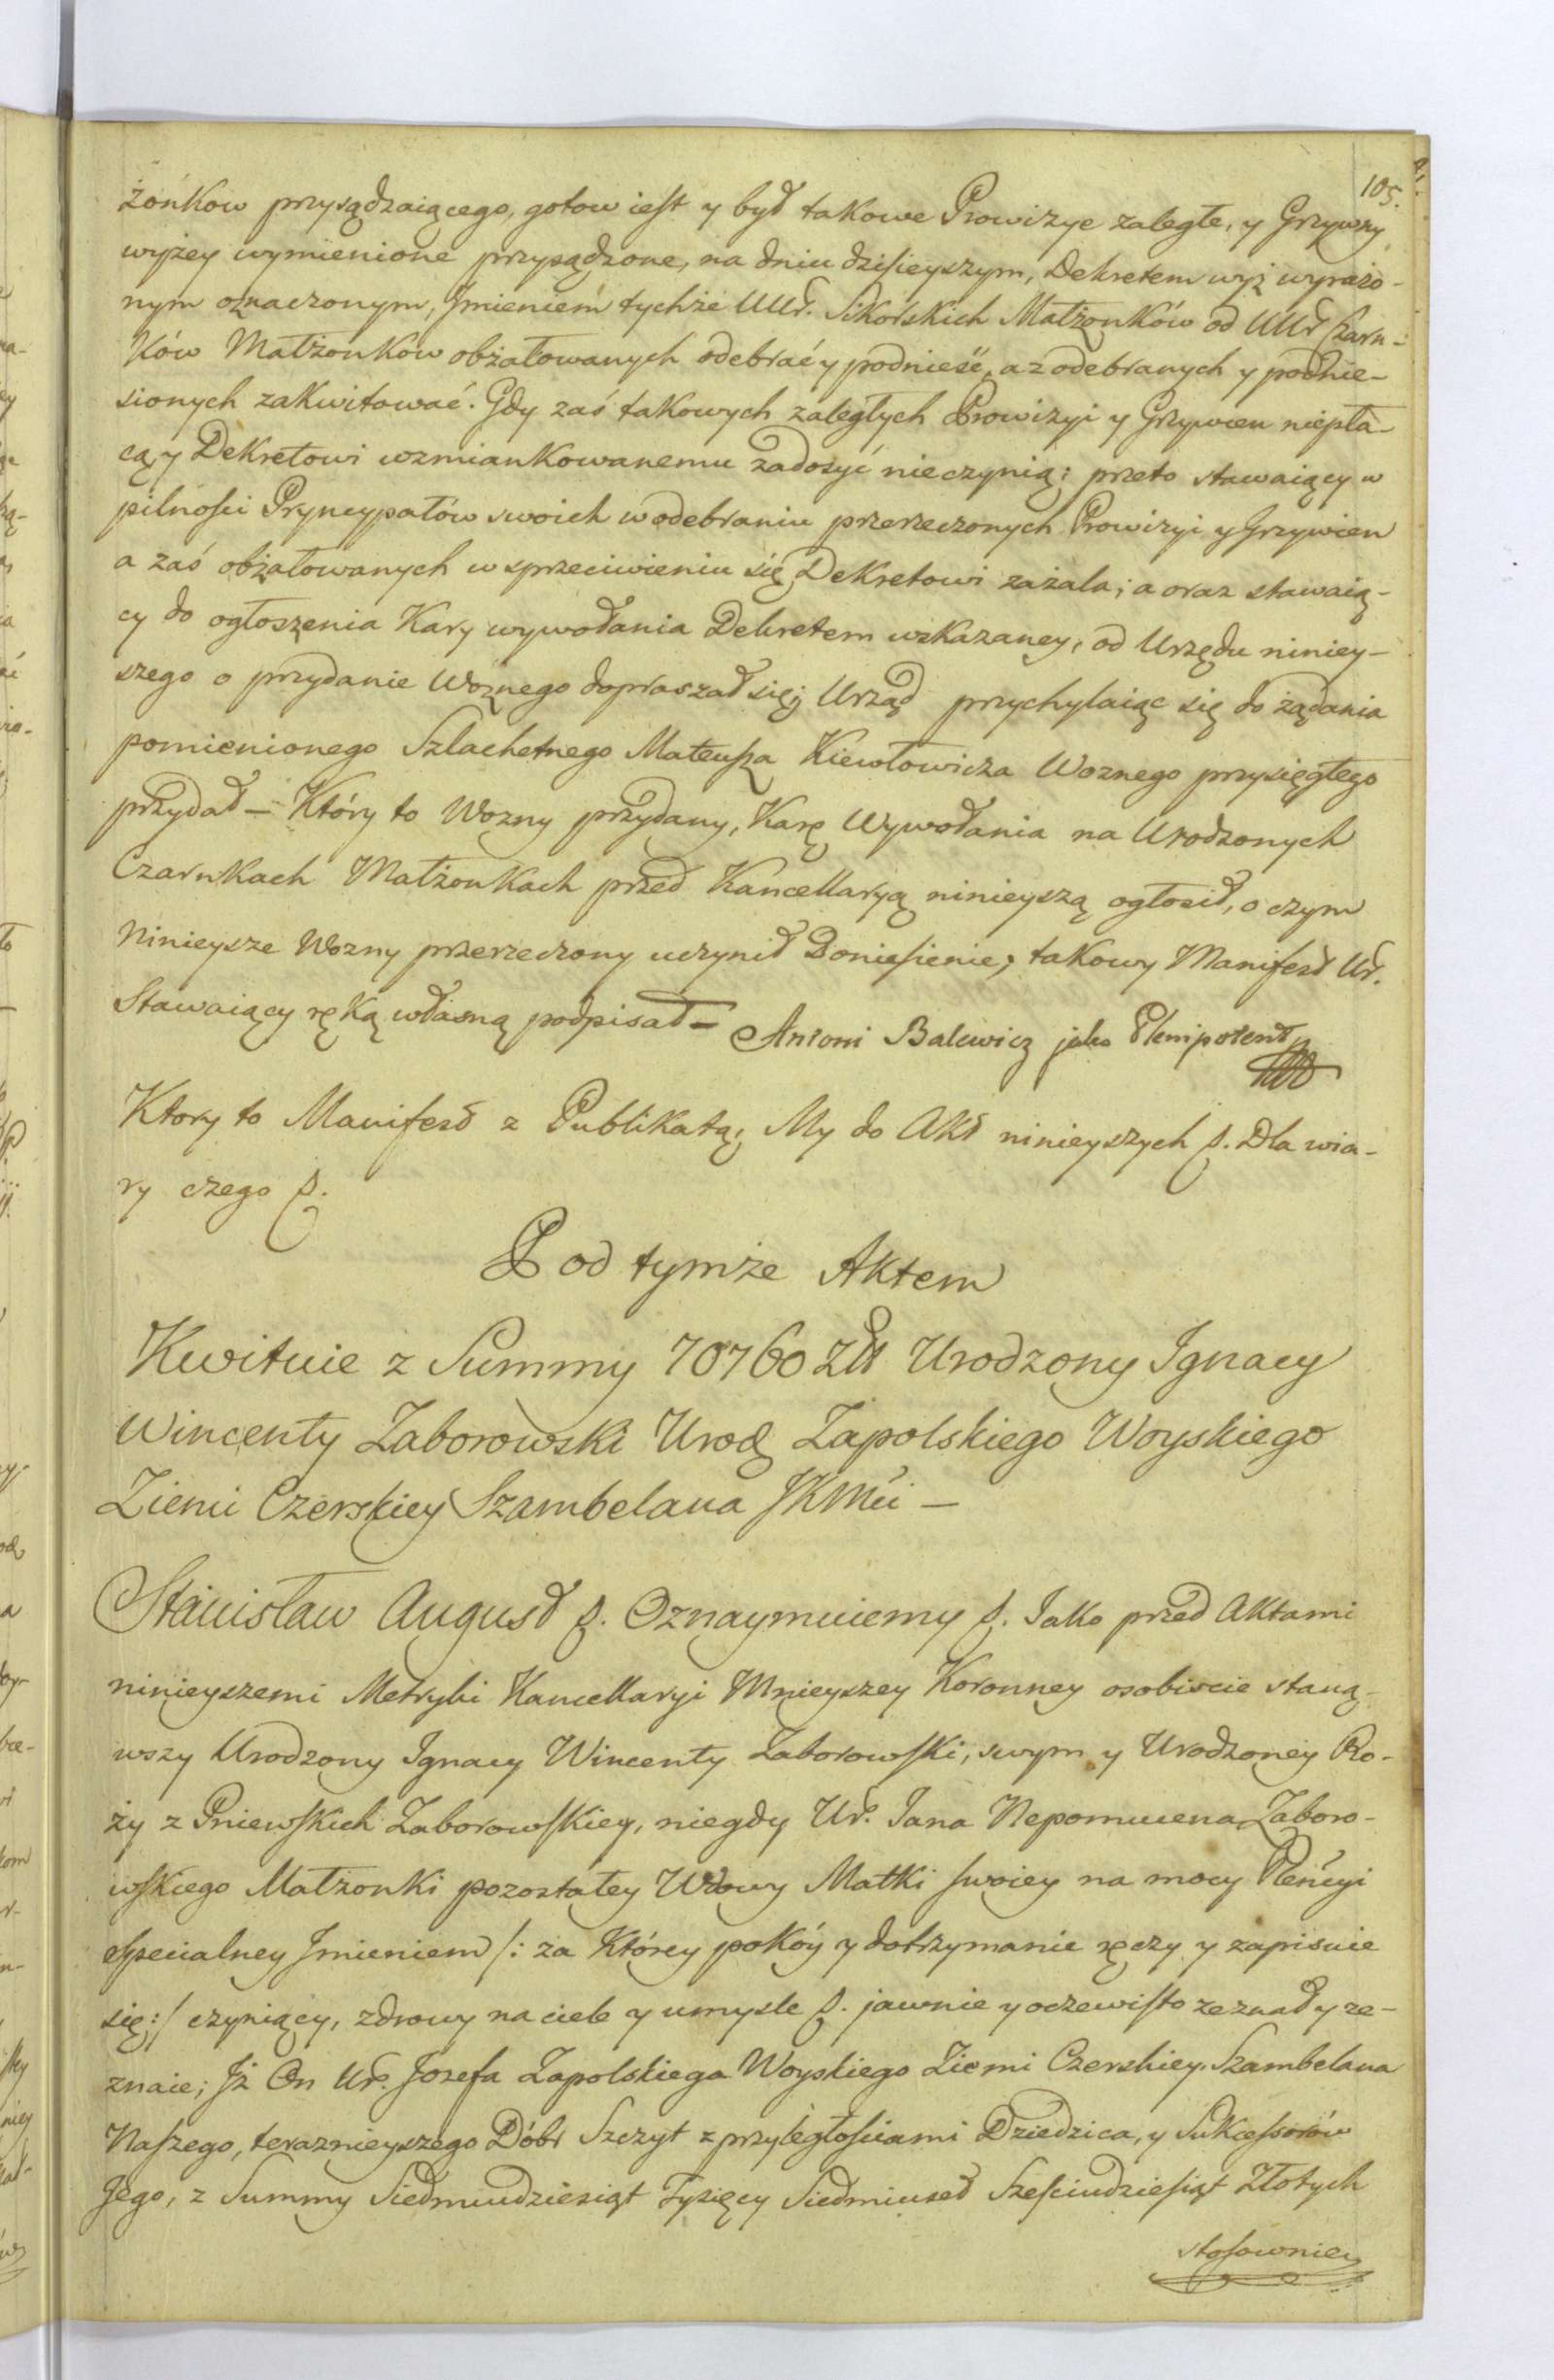 105.
żonkow przysądzaiącego, gotow iest y był takowe Prowizye zaległe, y Grzywny
wyżey wymienione przysądzone, na dniu dzisieyszym, Dekretem wyż wyrażo-
nym oznaczonym, Jmieniem tychże UUr. Sikorskich Małżonków od UUr Czarn-
ków Małżonkow obżałowanych odebrać y podnieść, a z odebranych y podnie-
sionych zakwitować. Gdy zaś takowych zaległych Prowizyi y Grzywien niepła-
cą, y Dekretowi wzmiankowanemu zadosyć nieczynią; przeto stawaiący w
pilności Pryncypałów swoich w odebraniu przerzeczonych Prowizyi y Grzywien
a zaś obżałowanych w sprzeciwieniu się Dekretowi zażala; a oraz stawaią-
cy do ogłoszenia Kary wywołania Dekretem wskazaney, od Urzędu niniey-
szego o przydanie Woznego dopraszał się; Urząd przychylaiąc się do żądania
pomienionego Szlachetnego Mateusza Kiewłowicza Woznego przysięgłego
przydał – Który to Wozny przydany, Karę Wywołania na Urodzonych
Czarnkach Małżonkach przed Kancellaryą ninieyszą ogłosił, o czym
Ninieysze Wozny przerzeczony uczynił Doniesienie, takowy Manifest Ur.
Stawaiący ręką własną podpisał – Antoni Balewicz jako Plenipotent
Ktory to Manifest z Publikatą, My do Akt ninieyszych p. Dla wia-
ry czego p.
Pod tymże Aktem
Kwituie z Summy 70760 Złł Urodzony Ignacy
Wincenty Zaborowski Urod Zapolskiego Woyskiego
Ziemi Czerskiey Szambelana JKMci –
Stanisław August p. Oznaymuiemy p. Jako przed Aktami
ninieyszemi Metryki Kancellaryi Mnieyszey Koronney osobiscie staną-
wszy Urodzony Ignacy Wincenty Zaborowski, swym y Urodzoney Ro-
ży z Pniewskich Zaborowskiey, niegdy Ur. Jana Nepomucena Zaboro-
wskiego Małżonki pozostałey Wdowy Matki swoiey na mocy Plen̄cyi
specialney Jmieniem /: za Którey pokóy y dotrzymanie ręczy y zapisuie
się :/ czyniący, zdrowy na ciele y umysle p. jawnie y oczewisto zeznał y ze-
znaie; Jż On Ur. Jozefa Zapolskiego Woyskiego Ziemi Czerskiey, Szambelana
Naszego, teraznieyszego Dóbr Szczyt z przyległościami Dziedzica, y Sukcessorów
Jego, z Summy Siedmiudziesiąt Tysięcy Siedmiuset Sześciudziesiąt Złotych
stosownie